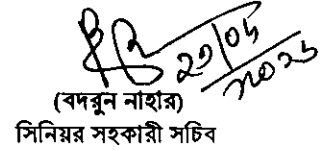 ২১/০৫
২০২৫
(বদরুন নাহার)
সিনিয়র সহকারী সচিব